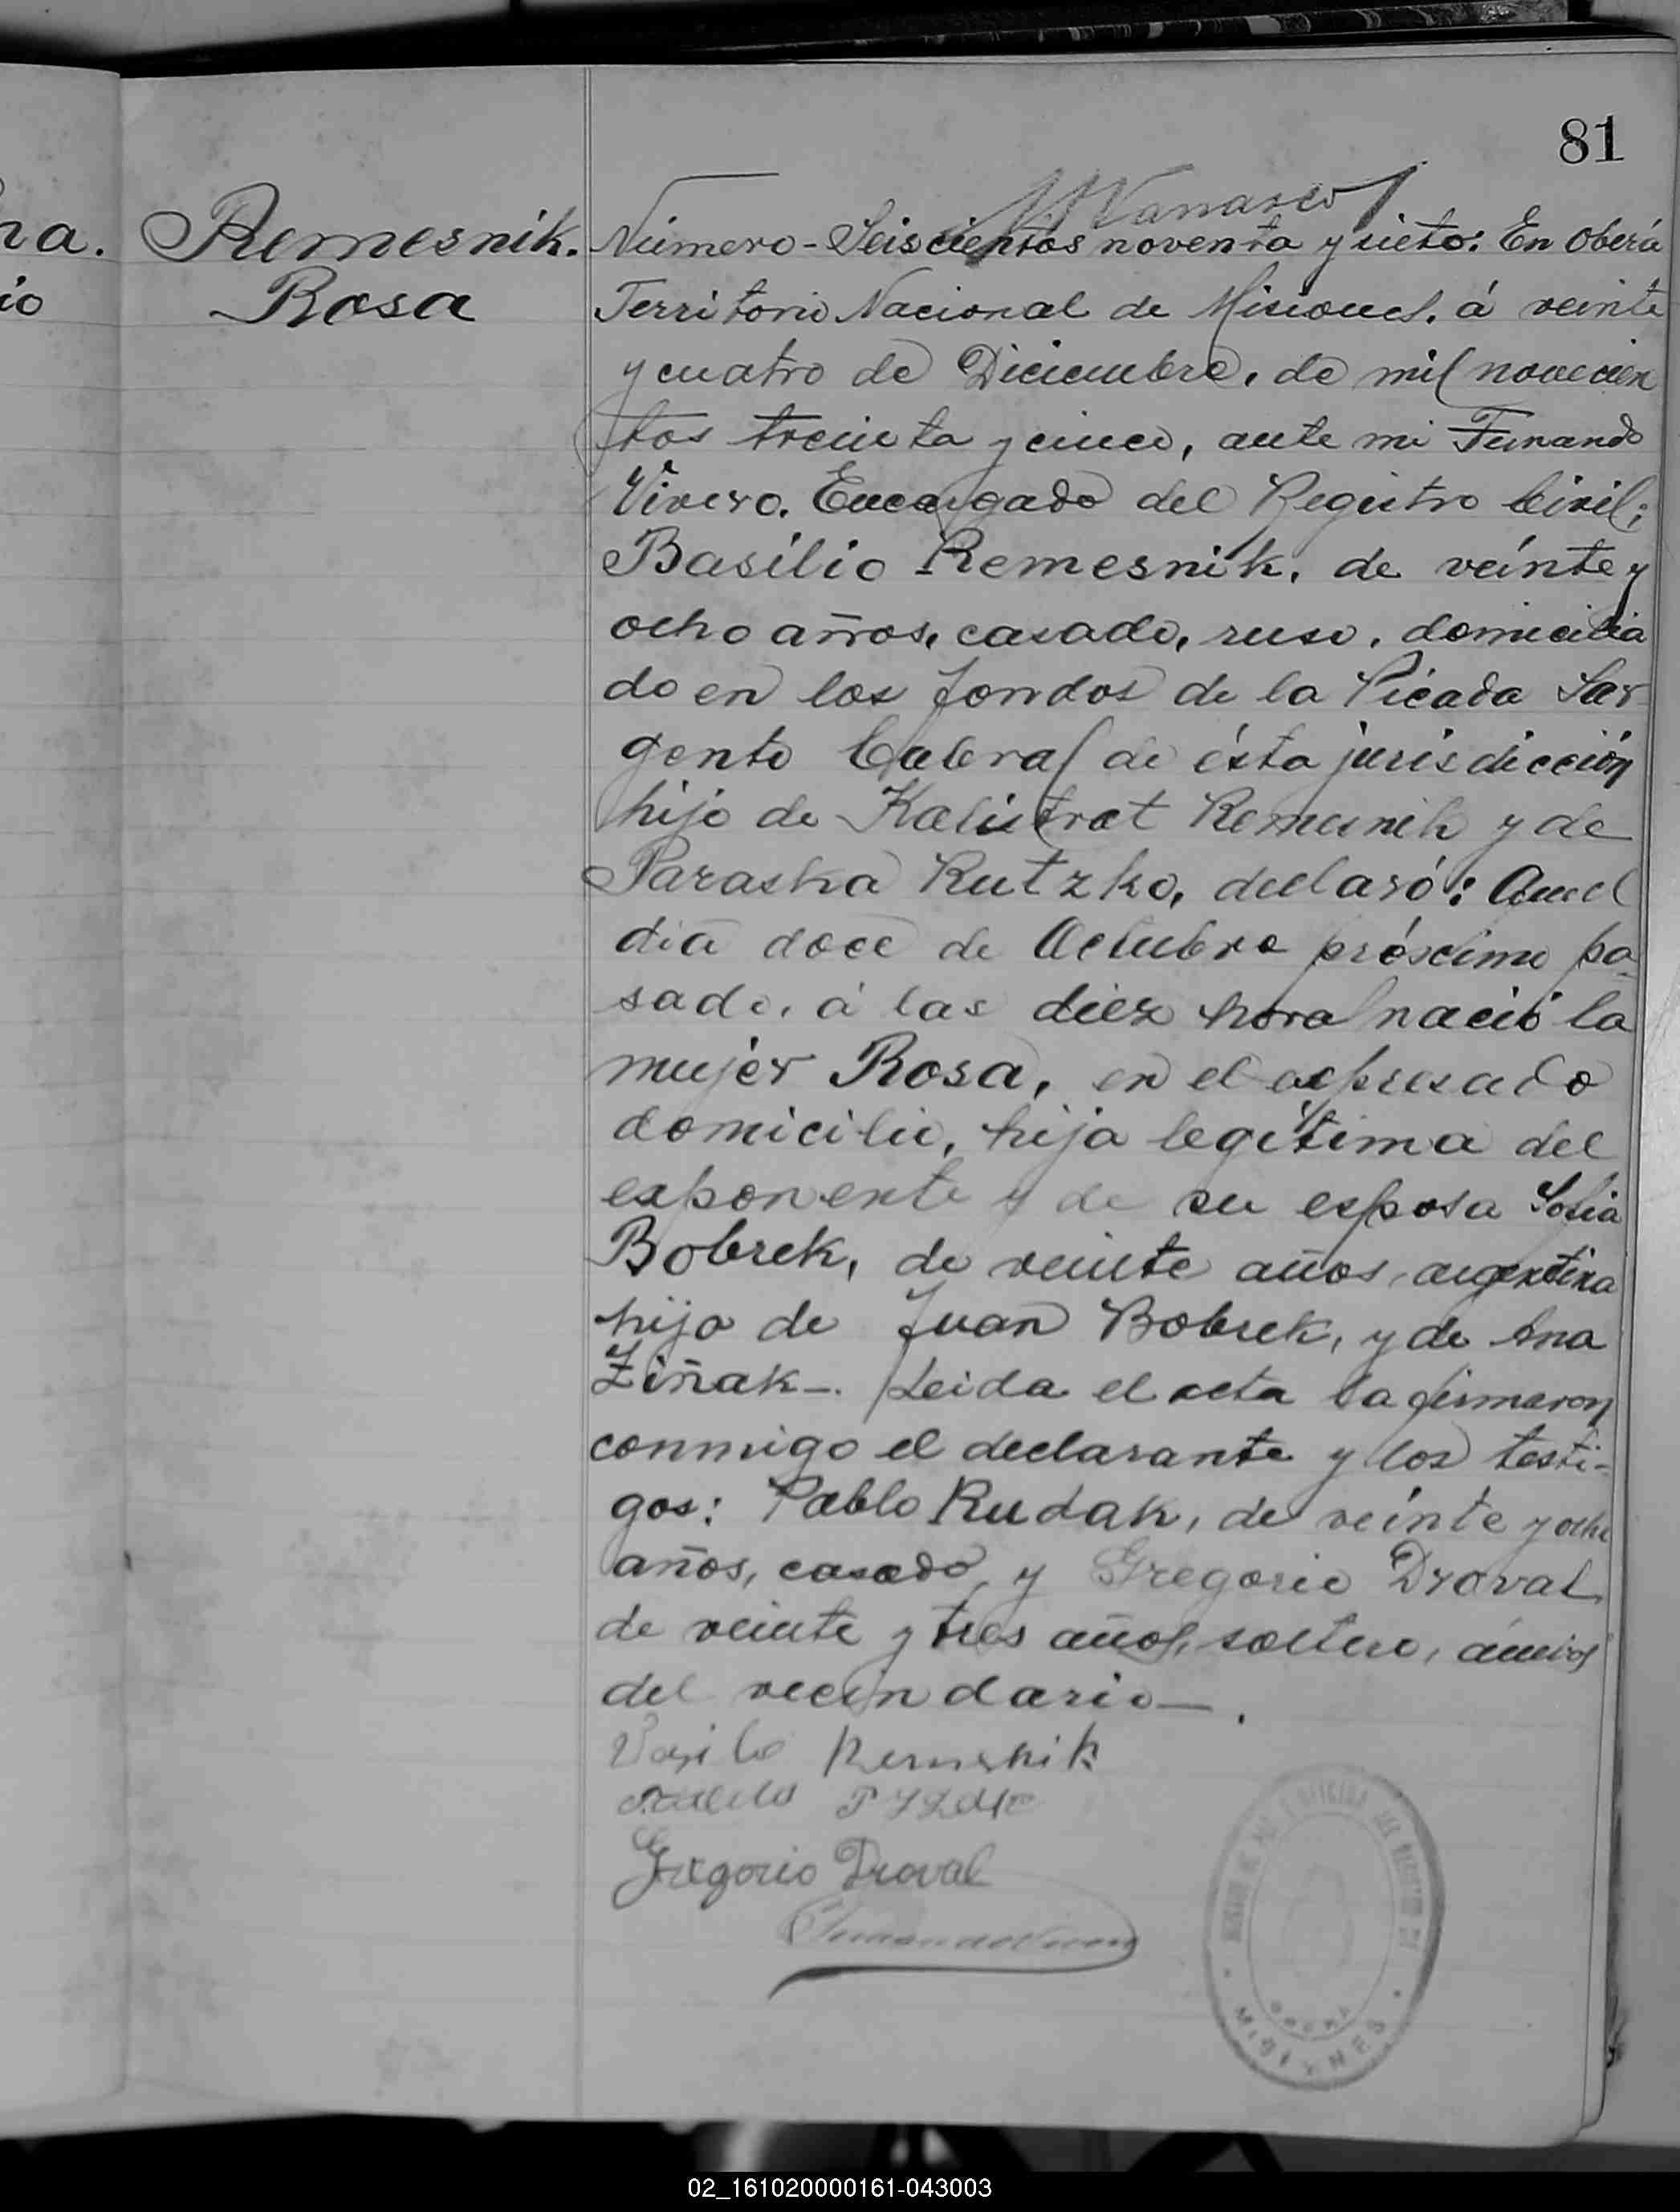 81
na.
io
Remesnik.
Rosa
Número - Seiscientos noventa y siete: En Oberá
Territorio Nacional de Misiones, á veinte
y cuatro de Diciembre, de mil novecien
tos treinta y cinco, ante mi Fernando
Vivero, Encargado del Registro Civil;
Basilio Remesnik, de veinte y
ocho años, casado, ruso, domicilia
do en los fondos de la Picada Sar
gento Cabral de ésta jurisdicción
hijo de Kalistrat Remesnik y de
Paraska Rutzko, declaró: Que el
dia doce de Octubre próximo pa-
sado, á las diez horas nació la
mujer Rosa, en el expresado
domicilio, hija legítima del
exponente y de su esposa Sofia
Bobrek, de veinte años, argentina
hija de Juan Bobrek, y de Ana
Ziñak-. Leida el acta la firmaron
conmigo el declarante y los testi-
gos: Pablo Rudak, de veinte y ocho
años, casado, y Gregorio Droval
de veinte y tres años, soltero, ámbos
del vecindario-.
Remesnik
Gregorio Droval
MISIONES
02_161020000161-043003